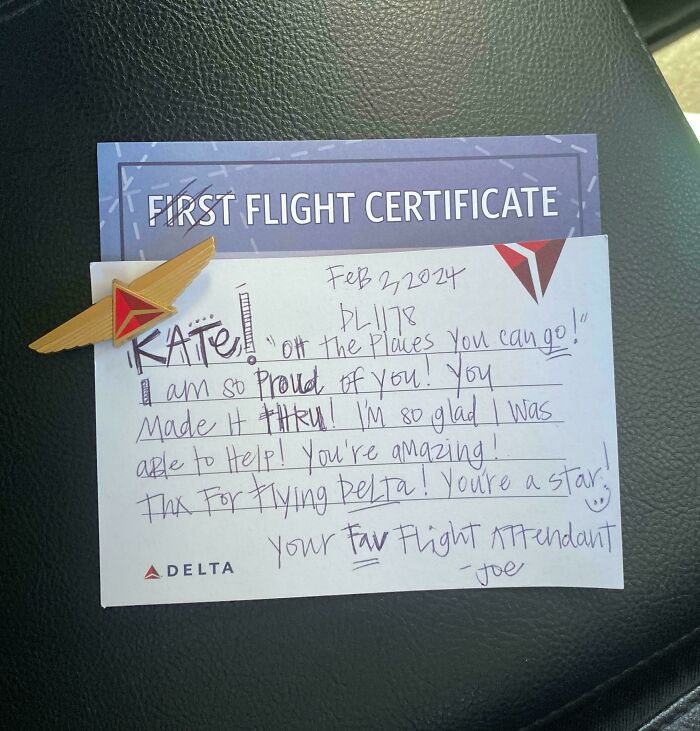 FIRST FLIGHT CERTIFICATE
Feb 2, 2024
DL1178
KATE! "oH the Places you can go!"
I am so Proud of you! You
Made it THRU! I'm so glad I was
able to Help! You're amazing!
Thx For Flying DELTA! You're a star!
Your Fav Flight Attendant
-Joe
DELTA